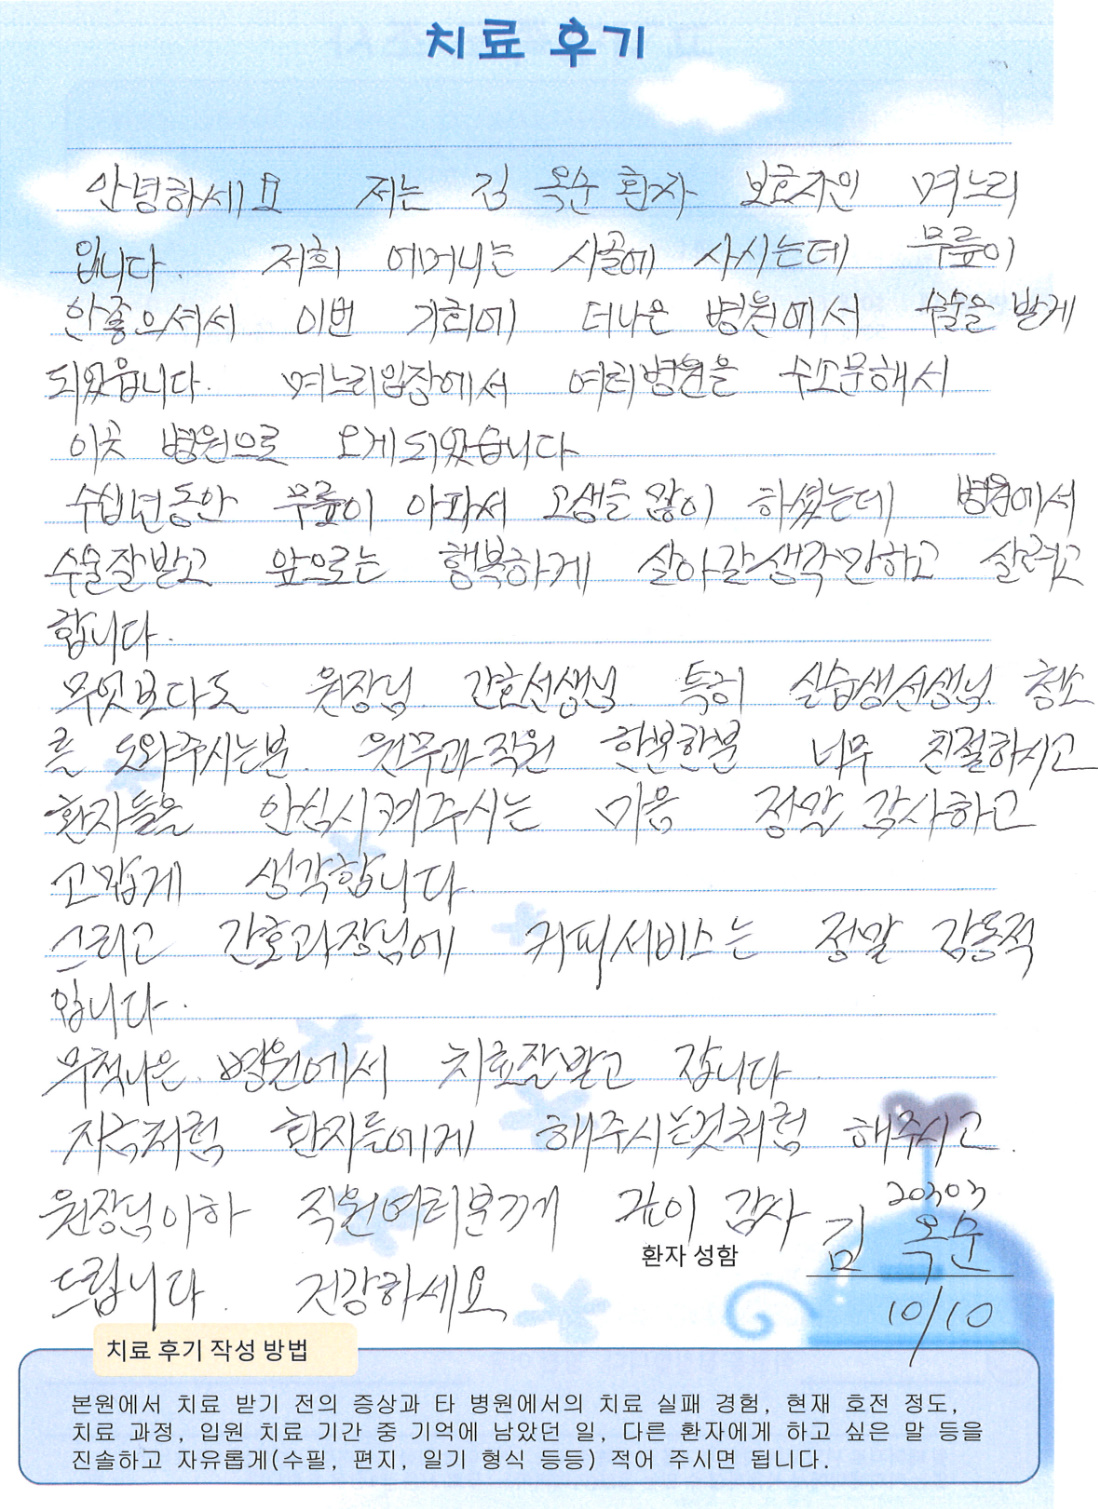 치료 후기
안녕하세요 저는 김 옥순 환자 보호자인 며느리
입니다. 저희 어머니는 시골에 사시는데 무릎이
안좋으셔서 이번 기회에 더나은 병원에서 수술을 받게
되었읍니다. 며느리입장에서 여러병원을 수소문해서
이곳 병원으로 오게되었습니다
수십년동안 무릎이 아파서 고생을 많이 하셨는데 병원에서
수술잘받고 앞으로는 행복하게 살아갈생각만하고 살려고
합니다.
무엇보다도 원장님. 간호선생님. 특히 실습생선생님. 청소
를 도와주시는분. 원무과직원 한분한분 너무 친절하시고
환자들을 안심시켜주시는 마음 정말 감사하고
고맙게 생각합니다
그리고 간호과장님에 커피서비스는 정말 감동적
입니다.
무척나은. 병원에서 치료잘받고 갑니다
지금처럼 환자들에게 해주시는것처럼 해주시고.
원장님이하 직원여러분께 깊이 감사
드립니다. 건강하세요
20303
환자 성함 김 옥순
10/10
치료 후기 작성 방법
본원에서 치료 받기 전의 증상과 타 병원에서의 치료 실패 경험, 현재 호전 정도,
치료 과정, 입원 치료 기간 중 기억에 남았던 일, 다른 환자에게 하고 싶은 말 등을
진솔하고 자유롭게(수필, 편지, 일기 형식 등등) 적어 주시면 됩니다.